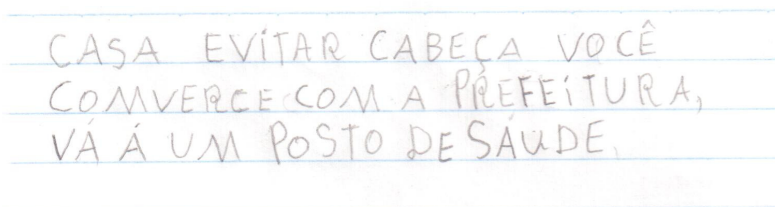 CASA EVITAR CABEÇA VOCÊ
COMVERCE COM A PREFEITURA,
VÁ Á UM POSTO DE SAUDE.